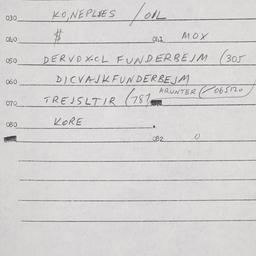 030 KO,NEPLIES / OIL
040 $ 042 MOX
050 DERVOXCL FUNDERBEJM (305
060 DICVAJKFUNDERBEJM
070 TREJSLTIR (787 ARUNTER (/065120
080 KORE
082 0